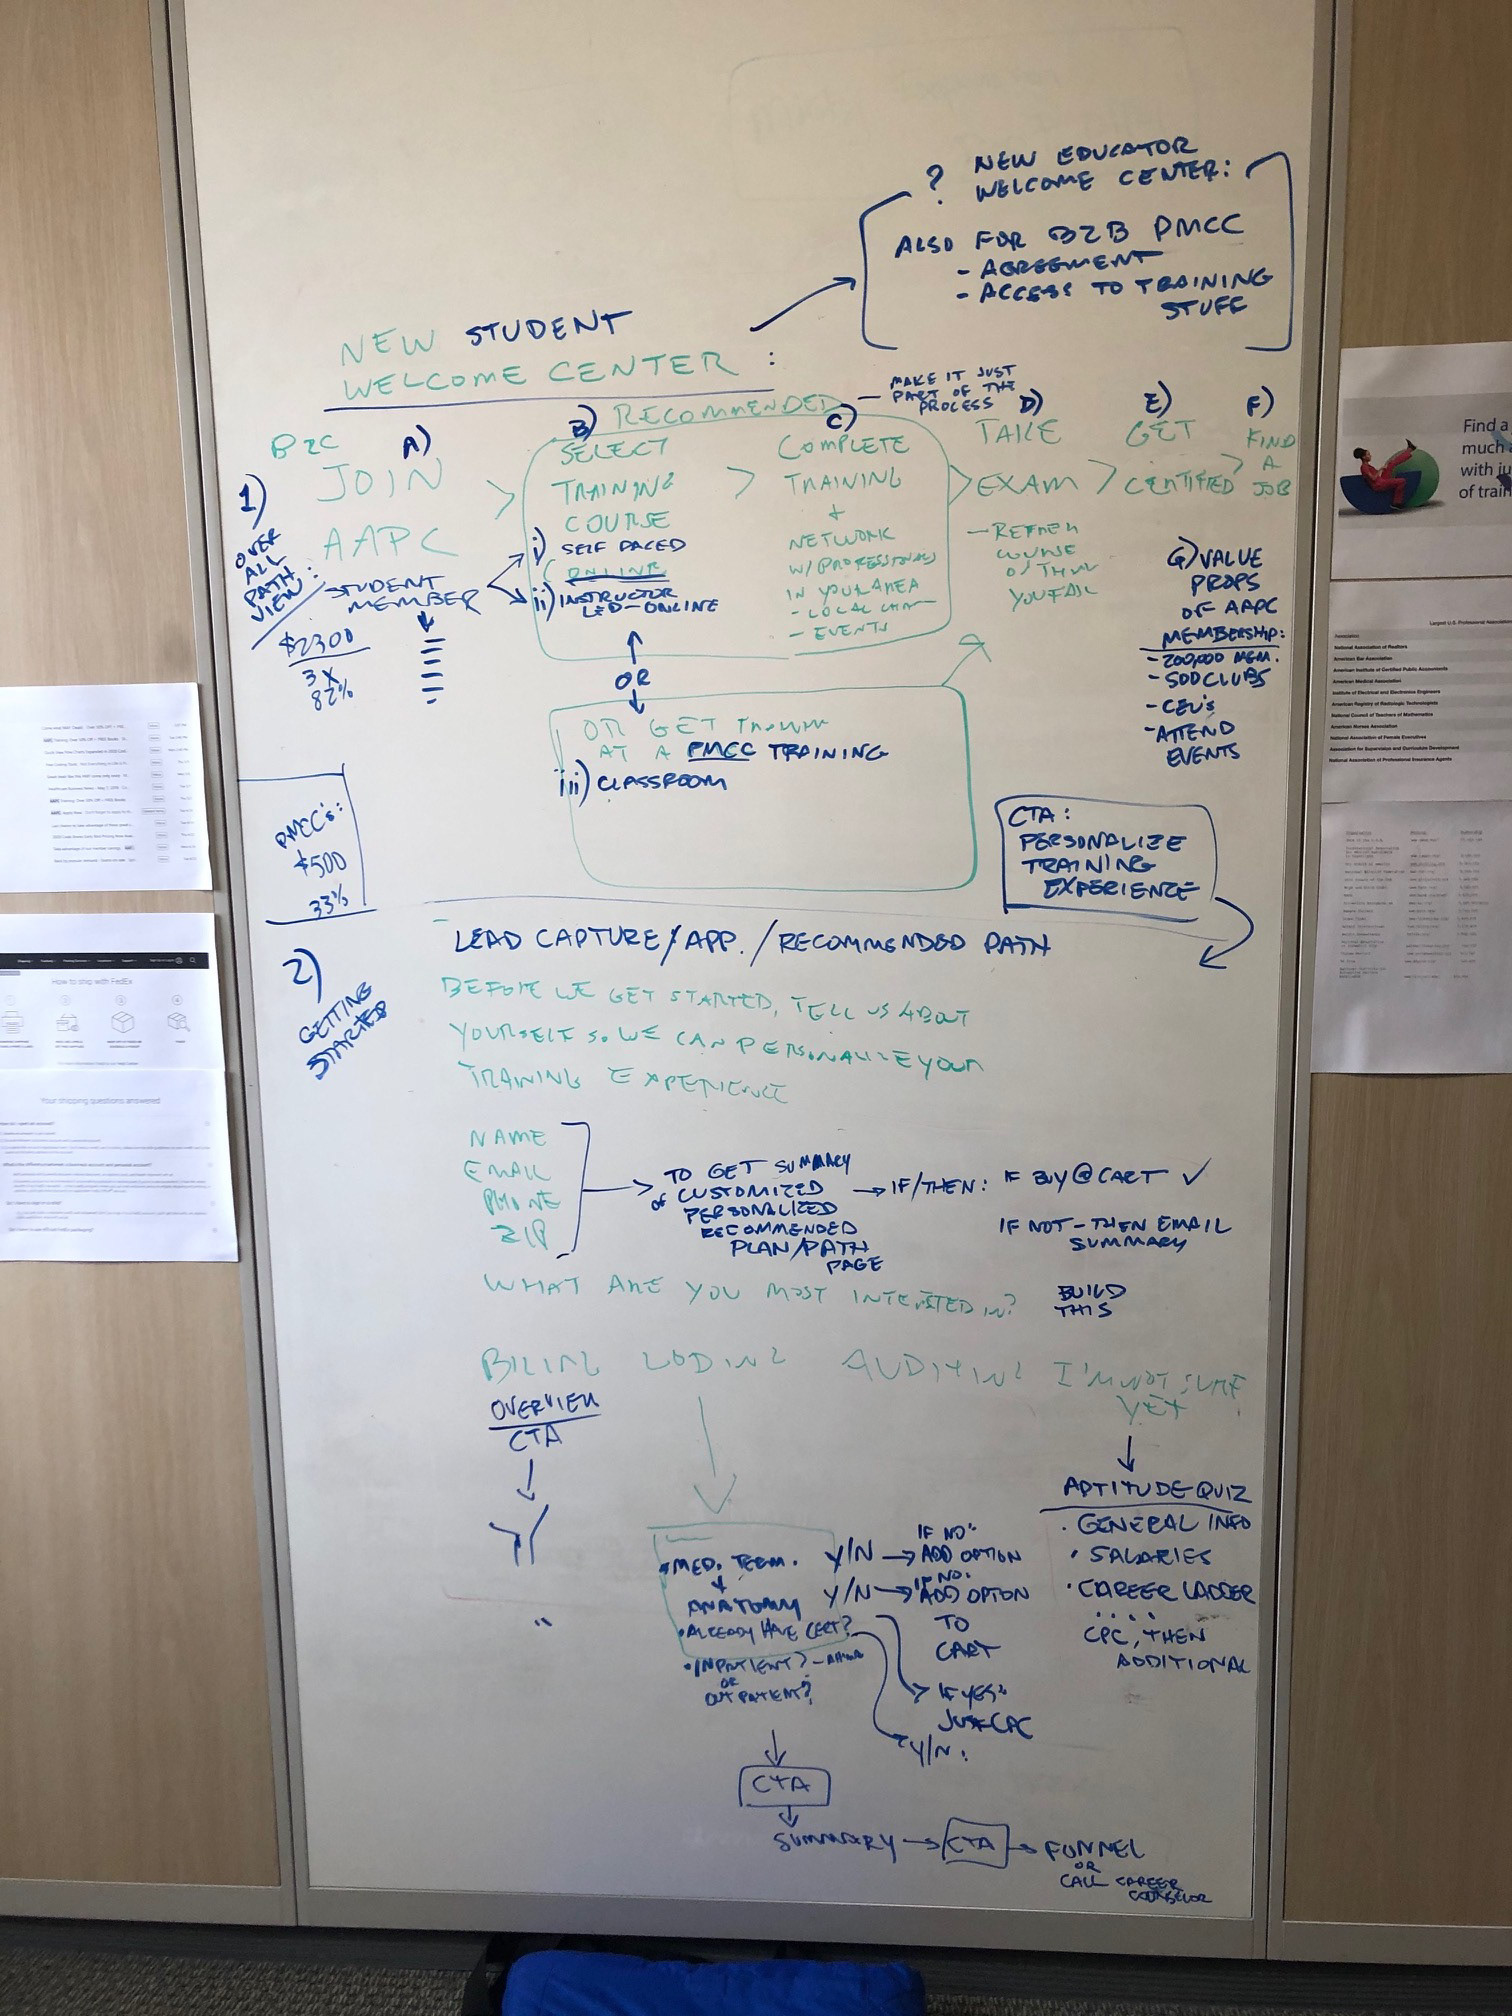 ? NEW EDUCATOR
WELCOME CENTER:
ALSO FOR B2B PMCC
- AGREEMENT
- ACCESS TO TRAINING
STUFF
NEW STUDENT
WELCOME CENTER:
MAKE IT JUST
PART OF THE
PROCESS
B2C
1)
OVER
ALL
PATH
VIEW:
A)
JOIN
AAPC
STUDENT
MEMBER
$2300
3X
82%
PMCC's:
$500
33%
RECOMMENDED
B)
SELECT
TRAINING
COURSE
i) SELF PACED
ONLINE
ii) INSTRUCTOR
LED-ONLINE
>
C)
COMPLETE
TRAINING
+
NETWORK
W/PROFESSIONALS
IN YOUR AREA
- LOCAL
- EVENTS
OR
OR GET
AT A PMCC TRAINING
iii) CLASSROOM
> D)
TAKE
EXAM
YOU FAIL
> E)
GET
CERTIFIED
> F)
FIND
A
JOB
G) VALUE
PROPS
OF AAPC
MEMBERSHIP:
- 200,000 MEM.
- 500 CLUBS
- CEU's
- ATTEND
EVENTS
CTA:
PERSONALIZE
TRAINING
EXPERIENCE
2)
GETTING
STARTED
LEAD CAPTURE/APP./RECOMMENDED PATH
BEFORE WE GET STARTED, TELL US ABOUT
YOURSELF SO WE CAN PERSONALIZE YOUR
TRAINING EXPERIENCE
NAME
EMAIL
PHONE
ZIP
TO GET SUMMARY
OF CUSTOMIZED
PERSONALIZED
RECOMMENDED
PLAN/PATH
PAGE
IF/THEN: IF BUY @ CART ✓
IF NOT - THEN EMAIL
SUMMARY
WHAT ARE YOU MOST INTERESTED IN?
BUILD
THIS
BILLING CODING AUDITING I'M NOT SURE
YET
OVERVIEW
CTA
"
• MED. TERM. Y/N
+
ANATOMY Y/N
• ALREADY HAVE CERT?
• INPATIENT?
OR
OUTPATIENT?
IF NO:
ADD OPTION
IF NO:
ADD OPTION
TO
CART
IF YES:
JUST CPC
Y/N:
APTITUDE QUIZ
• GENERAL INFO
• SALARIES
• CAREER LADDER
CPC, THEN
ADDITIONAL
CTA
SUMMARY
CTA
FUNNEL
OR
CALL CAREER
COUNSELOR
How to ship with FedEx
Your shipping questions answered
Find a
much
with ju
of train
Largest U.S. Professional Associations
Association
National Association of Realtors
American Bar Association
American Institute of Certified Public Accountants
American Medical Association
Institute of Electrical and Electronics Engineers
American Registry of Radiologic Technologists
National Council of Teachers of Mathematics
American Nurses Association
National Association of Female Executives
Association for Supervision and Curriculum Development
National Association of Professional Insurance Agents